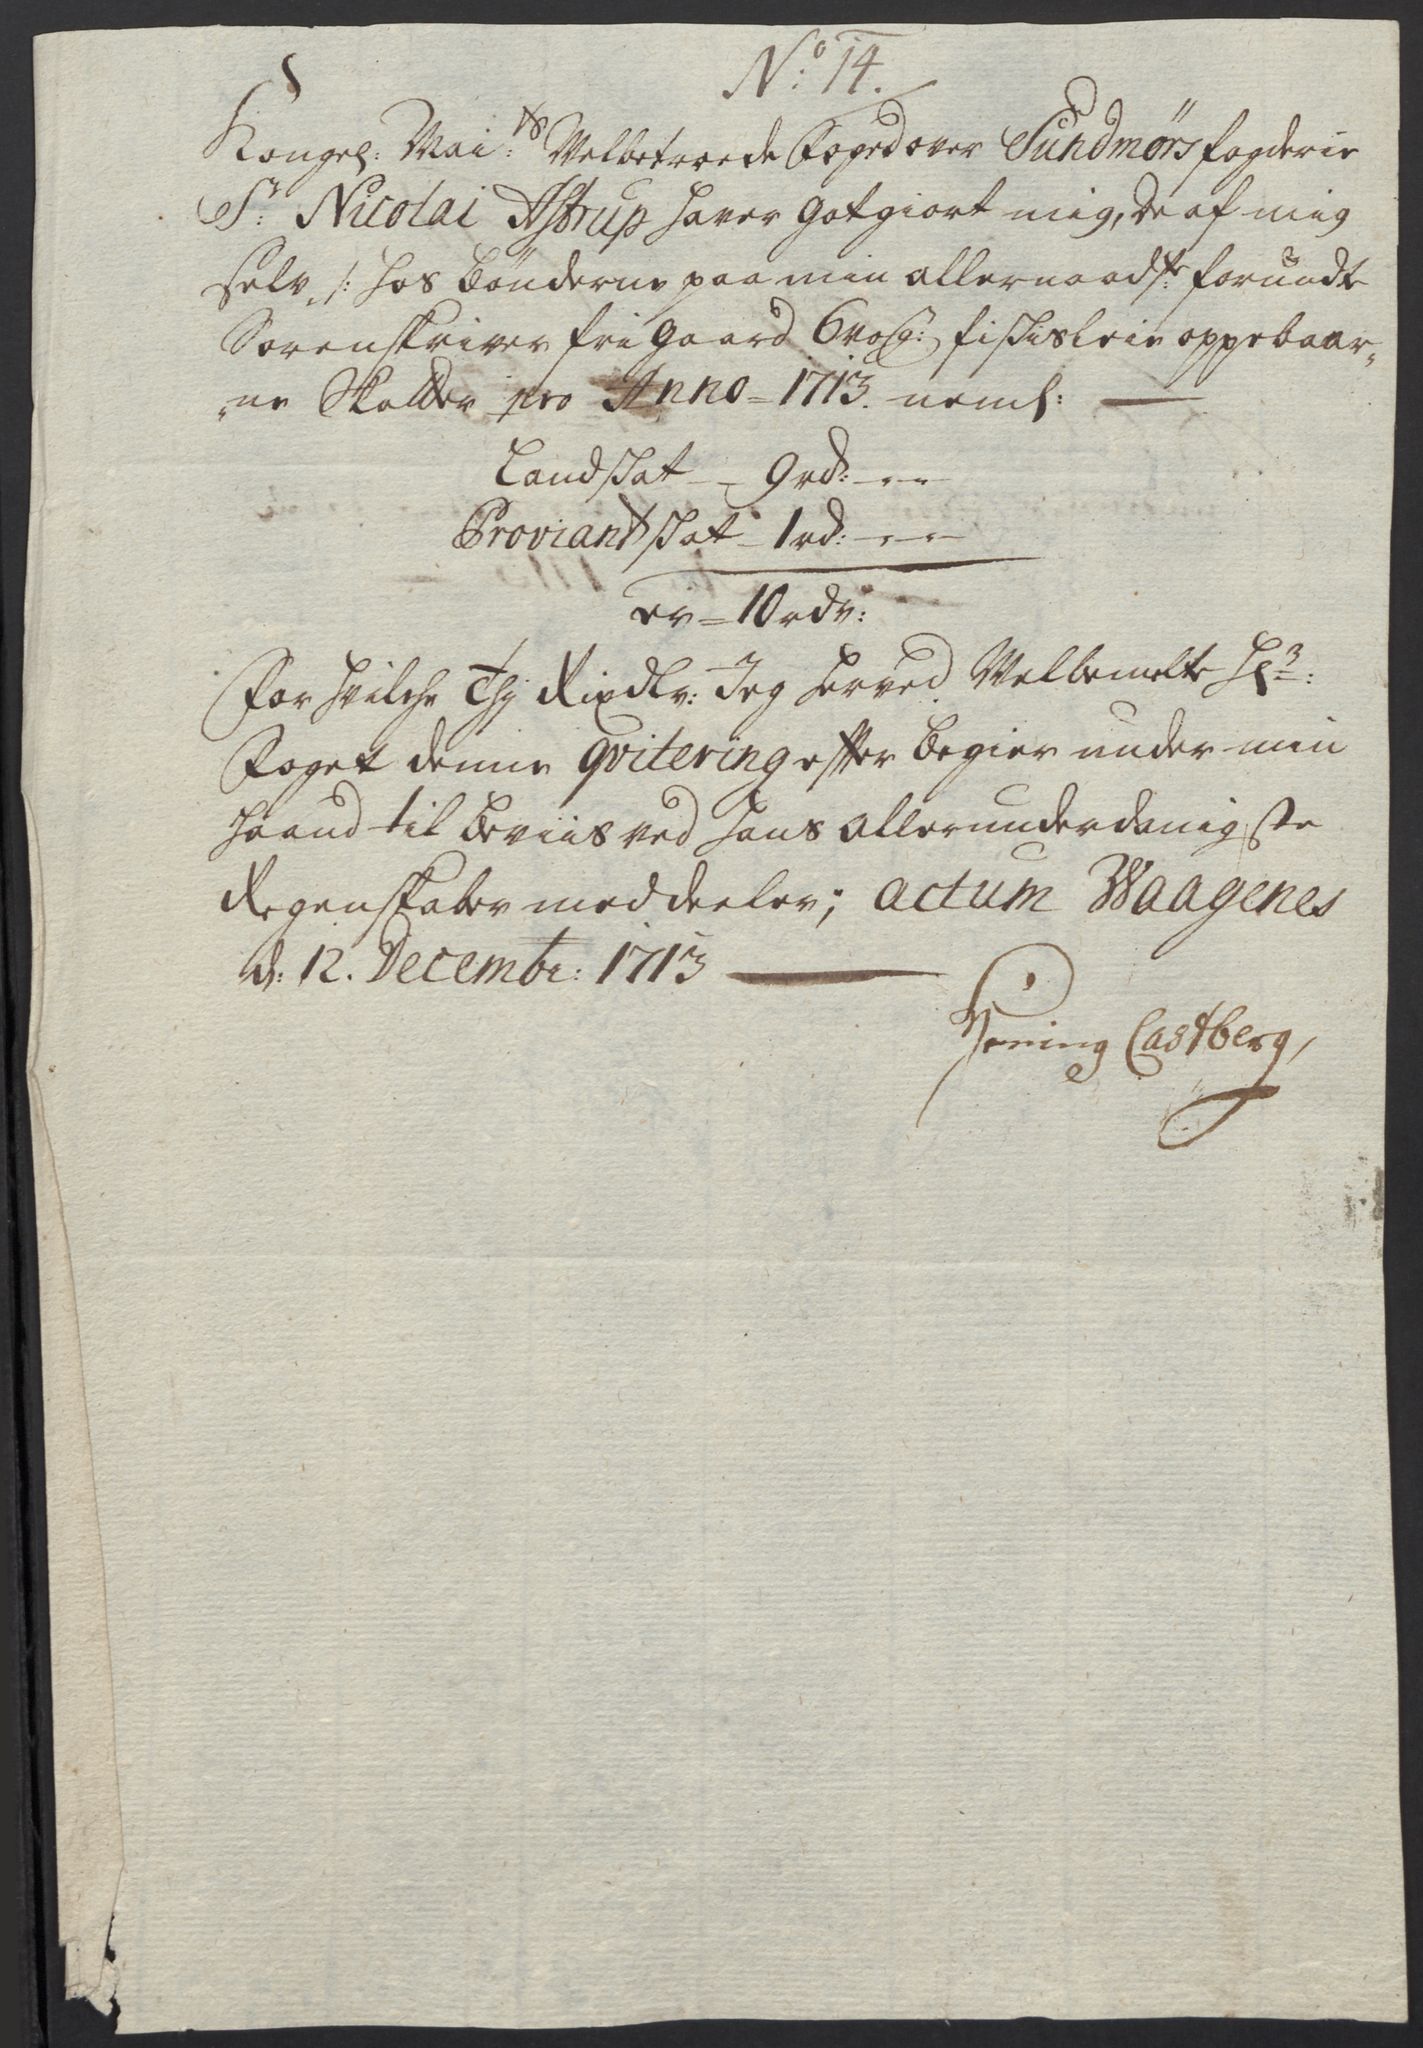 No: 14.
Kongel: Mai:ts Velbetroede Foged over Sundmørs fogderie
Sr: Nicolai Astrup haver gotgiort mig, de af mig
selv /: hos bønderne paa min allernaadste forundte
Sorenskriver frigaard 6 vog: fiskisleie oppebaar-
-ne Skatter pro Anno = 1713. neml:
Landskat - 9 rd: - - -
Proviantskat - 1 rd: - - -
er = 10 rdr:
For hvilche Thj Rixdlr: Jeg herved Velbemelte Hr:
Foget denne qvitering effter begier under min
haand til beviis ved hans allerunderdanigste
Regenskaber meddeeler; actum Waagenes
d: 12. Decembr: 1713
Søring Castberg